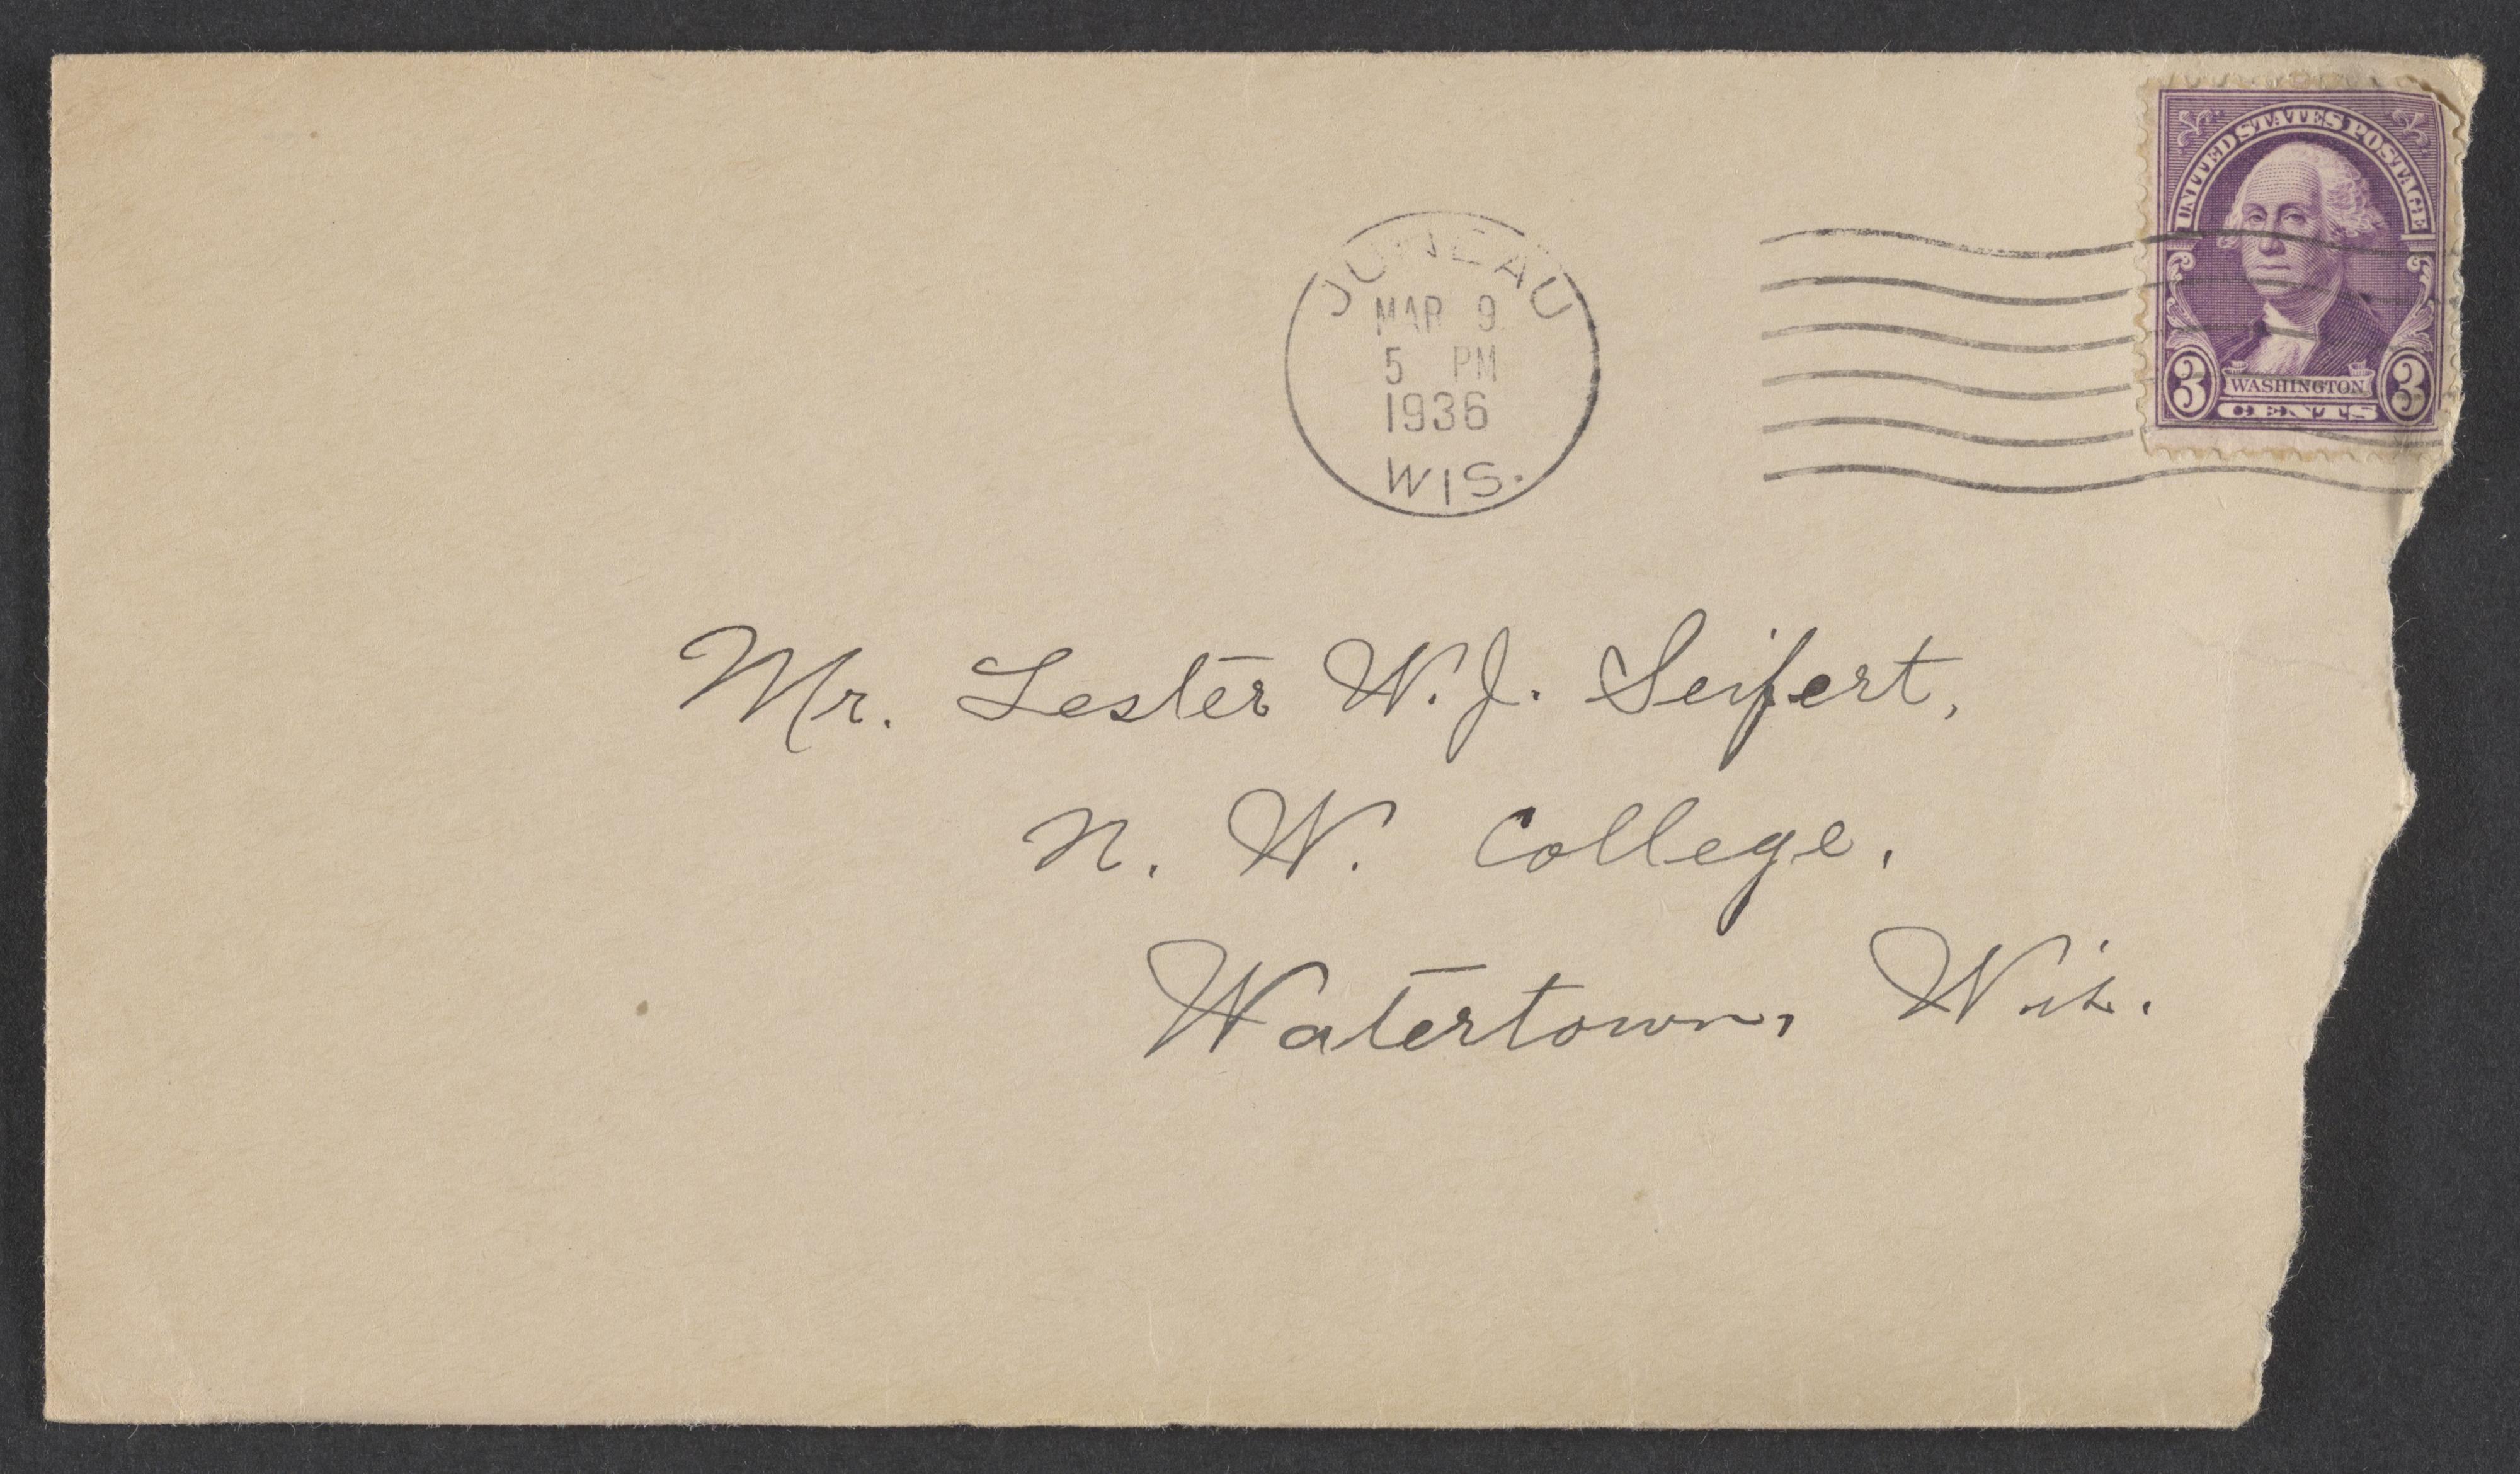 UNITED STATES POSTAGE
WASHINGTON
3 3
CENTS
JUNEAU
MAR 9
5 PM
1936
WIS.
Mr. Lester W. J. Seifert,
N. W. College,
Watertown, Wis.